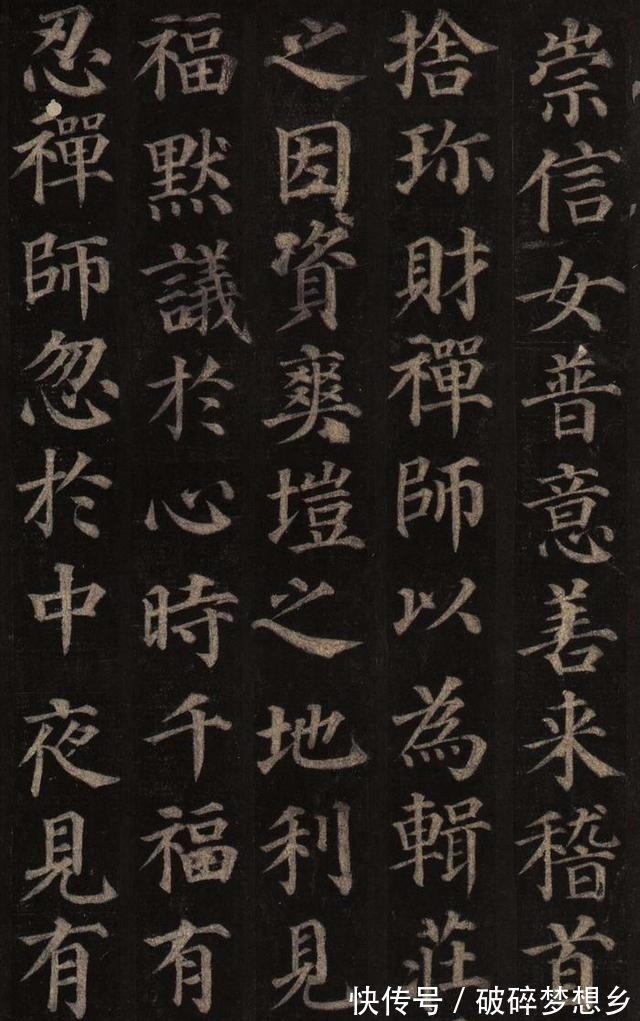 崇信女普意善来稽首
捨珎財禪師以為輯莊
之因資爽塏之地利見
福默議於心時千福有
忍禪師忽於中夜見有
快传号 / 破碎梦想乡